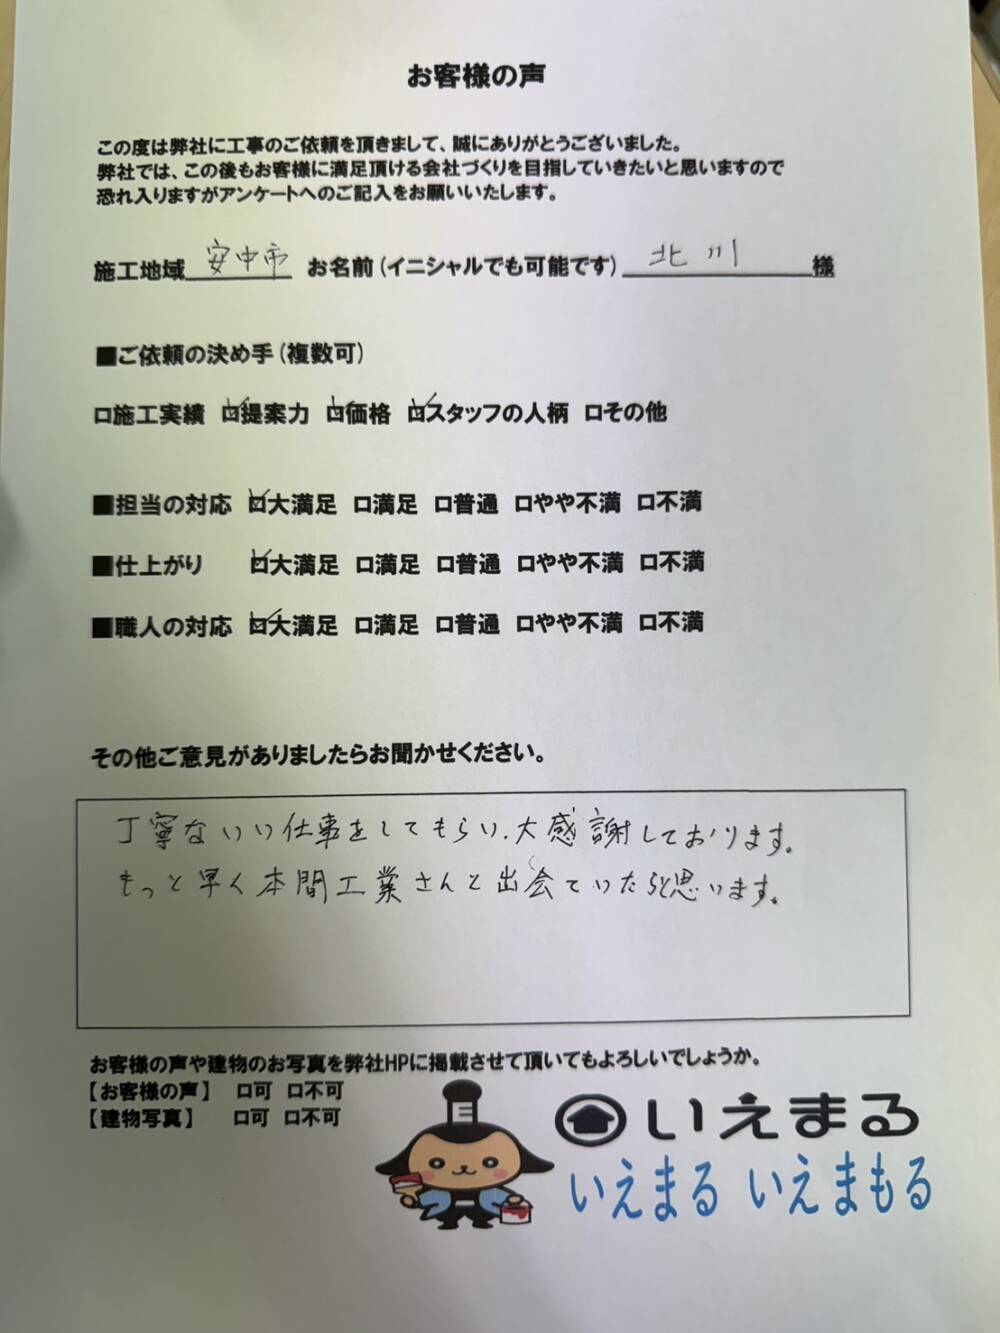 お客様の声
この度は弊社に工事のご依頼を頂きまして、誠にありがとうございました。
弊社では、この後もお客様に満足頂ける会社づくりを目指していきたいと思いますので
恐れ入りますがアンケートへのご記入をお願いいたします。
施工地域 安中市 お名前(イニシャルでも可能です) 北川 様
■ご依頼の決め手(複数可)
□施工実績 ☑提案力 ☑価格 ☑スタッフの人柄 □その他
■担当の対応 ☑大満足 □満足 □普通 □やや不満 □不満
■仕上がり ☑大満足 □満足 □普通 □やや不満 □不満
■職人の対応 ☑大満足 □満足 □普通 □やや不満 □不満
その他ご意見がありましたらお聞かせください。
丁寧ないい仕事をしてもらい、大感謝しております。
もっと早く本間工業さんと出会ていたらと思います。
お客様の声や建物のお写真を弊社HPに掲載させて頂いてもよろしいでしょうか。
【お客様の声】 □可 □不可
【建物写真】 □可 □不可
いえまる
いえまる いえまもる